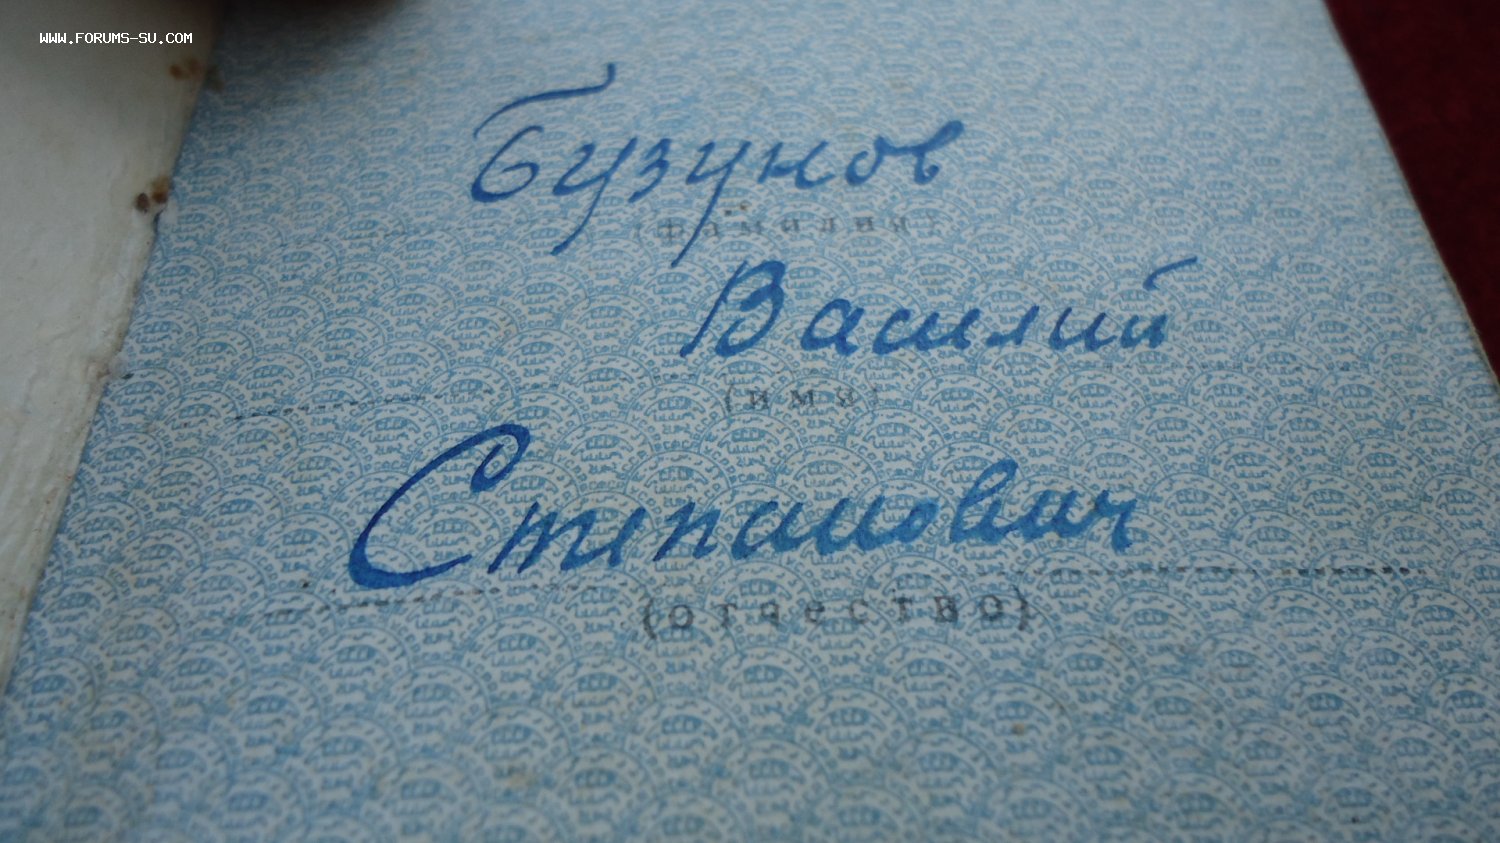 WWW.FORUMS-SU.COM
Бузунов
(фамилия)
Василий
(имя)
Степанович
(отчество)